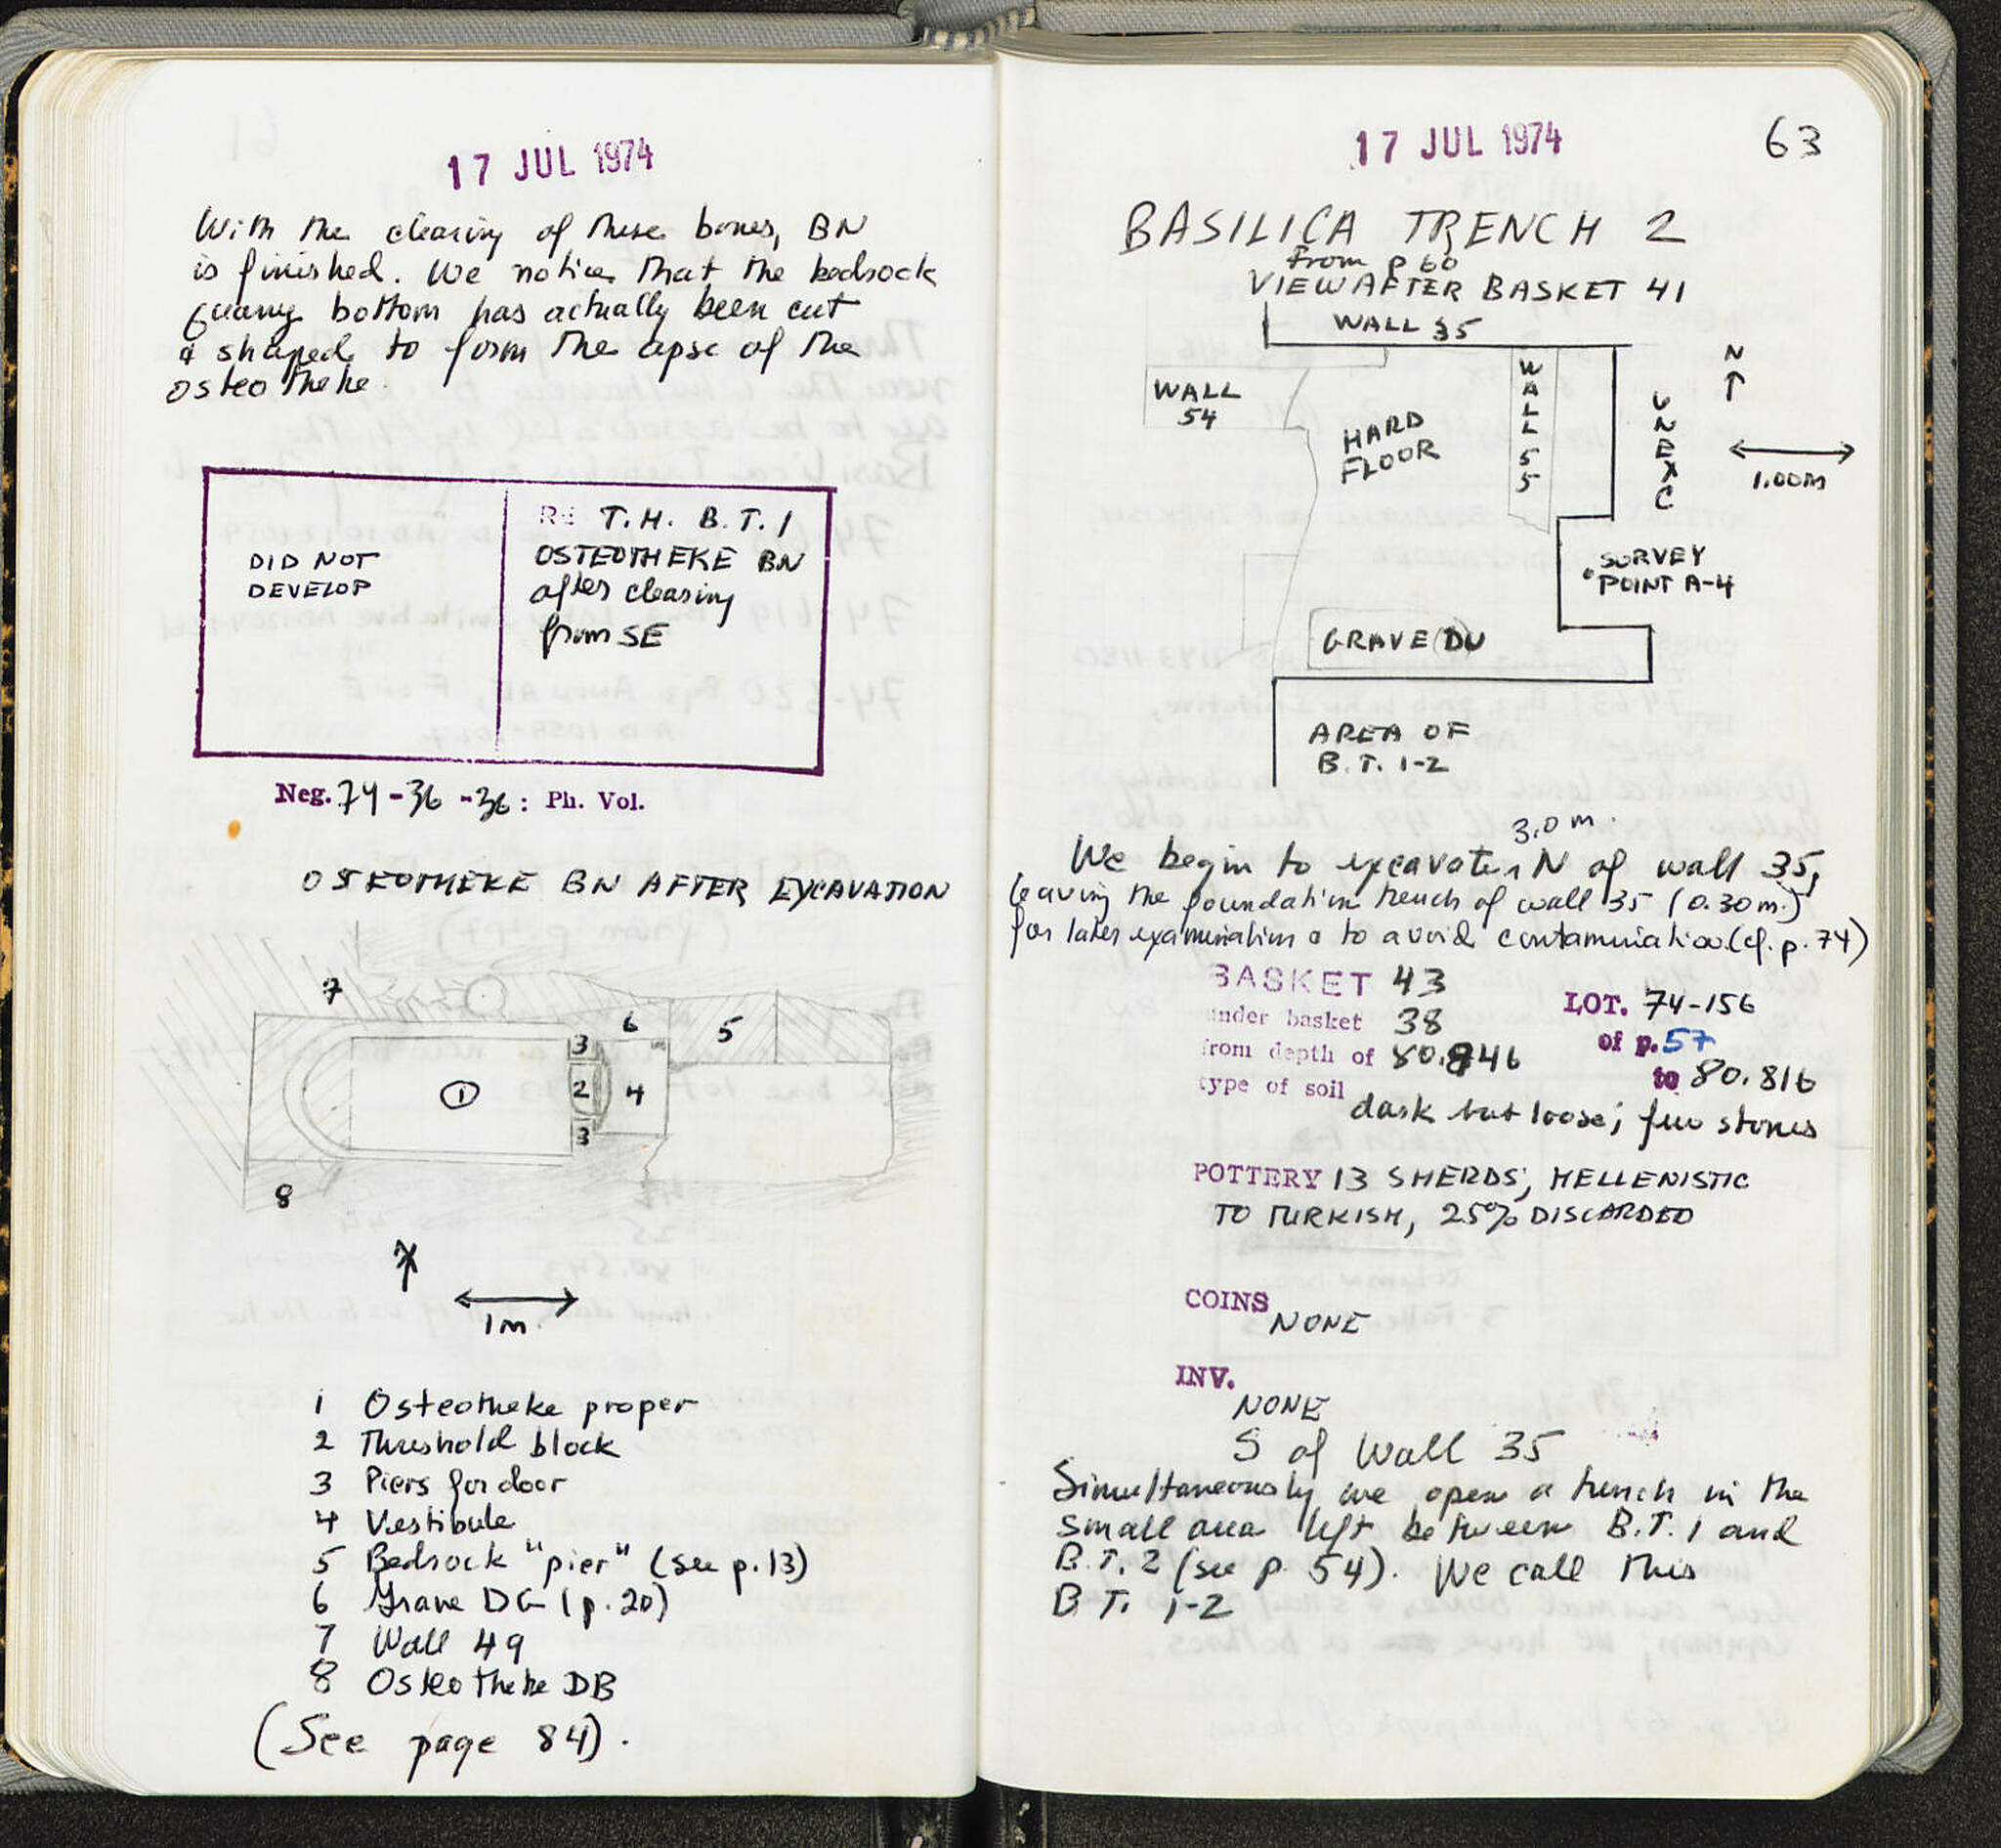 17 JUL 1974
With the clearing of these bones, BN
is finished. We notice that the bedrock
quarry bottom has actually been cut
& shaped to form the apse of the
osteotheke.
DID NOT
DEVELOP
RE T.H. B.T. 1
OSTEOTHEKE BN
after clearing
from SE
Neg. 74-36-36: Ph. Vol.
OSTEOTHEKE BN AFTER EXCAVATION
7
6
5
3
1
2
4
3
8
1m.
1 Osteotheke proper
2 Threshold block
3 Piers for door
4 Vestibule
5 Bedrock "pier" (see p. 13)
6 Grave DG (p. 20)
7 Wall 49
8 Osteotheke DB
(See page 84).
17 JUL 1974
63
BASILICA TRENCH 2
from p 60
VIEW AFTER BASKET 41
WALL 35
N
WALL
54
HARD
FLOOR
WALL 55
UNEXC
1.00m
SURVEY
POINT A-4
GRAVE (DU
AREA OF
B.T. 1-2
3.0 m.
We begin to excavate N of wall 35,
leaving the foundation trench of wall 35 (0.30m.)
for later examination & to avoid contamination. (cf. p. 74)
BASKET 43
LOT. 74-156
under basket 38
of p. 57
from depth of 80.946
to 80.816
type of soil
dark but loose; few stones
POTTERY 13 SHERDS; HELLENISTIC
TO TURKISH, 25% DISCARDED
COINS
NONE
INV.
NONE
S of Wall 35
Simultaneously we open a trench in the
small area left between B.T. 1 and
B.T. 2 (see p. 54). We call this
B.T. 1-2